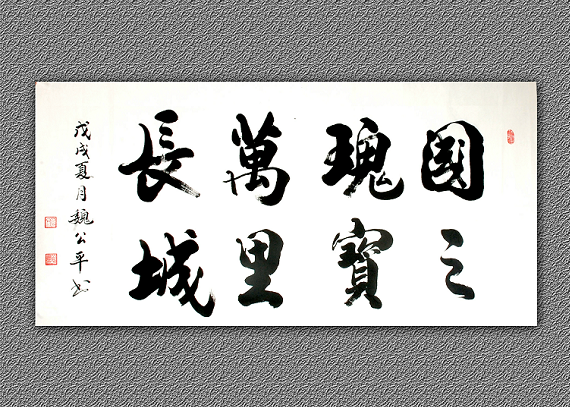 國之
瑰寶
萬里
長城
戊戌夏月魏公平书